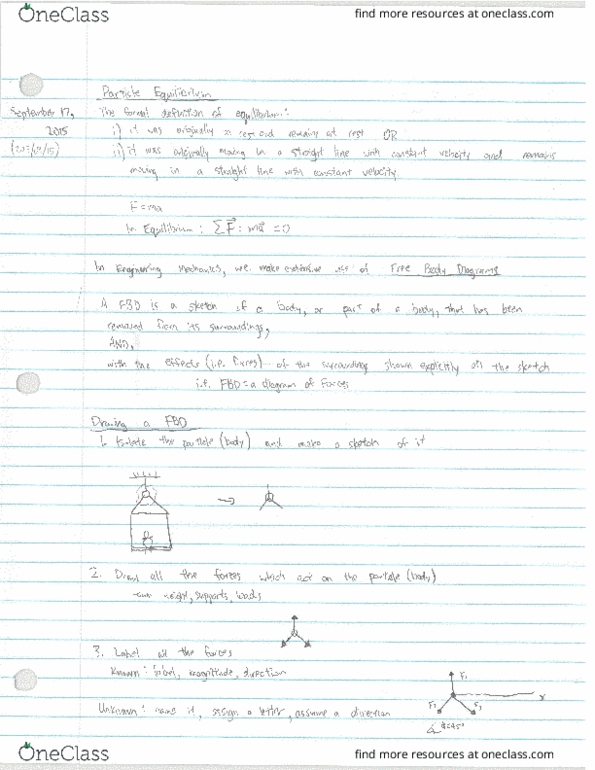 OneClass
find more resources at oneclass.com
Particle Equilibrium
September 17, 2015
The formal definition of equilibrium:
i) it was originally @ rest and remains at rest OR
ii) it was originally moving in a straight line with constant velocity and remains
moving in a straight line with constant velocity
F=ma
In Equilibrium: ΣF = ma = 0
In Engineering Mechanics, we make extensive use of Free Body Diagrams
A FBD is a sketch of a body, or part of a body, that has been
removed from its surroundings,
AND,
with the effects (i.e. forces) of the surroundings shown explicitly on the sketch
i.e. FBD = a diagram of forces
Drawing a FBD
1. Isolate the particle (body) and make a sketch of it
2. Draw all the forces which act on the particle (body)
weight, supports, loads
3. Label all the forces
Known: label, magnitude, direction
Unknown: name it, assign a letter, assume a direction
F1
x
F2
F3
OneClass
find more resources at oneclass.com